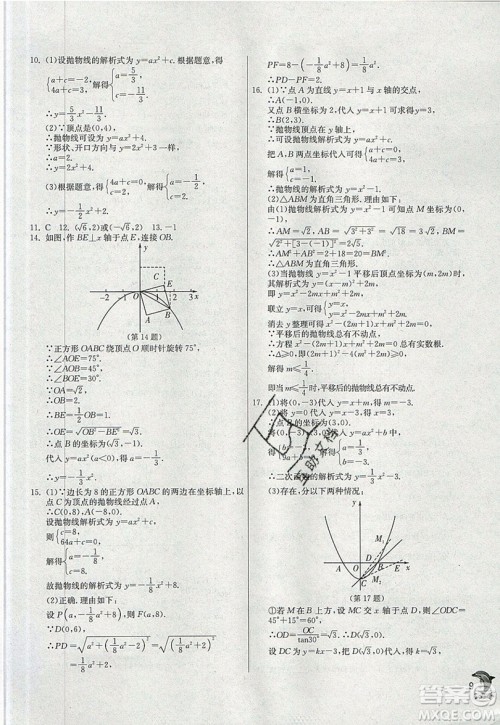 10. (1)设抛物线的解析式为 y=ax²+c. 根据题意,得
{a+c=-2, 4a+c=3, 解得{a=5/3, c=-11/3.
∴y=5/3x²-11/3.
(2)∵顶点是(0,4),
∴抛物线可设为 y=ax²+4.
∵形状、开口方向与 y=2x²-3 相同,
∴a=2.
∴y=2x²+4.
(3)根据题意,得{a+c=-1, 4a+c=-1/2, 解得
∴y=1/6x²-
11. C 12. (√6,2)或(-√6,2) 13. -1
14. 如图,作 BE⊥x 轴于点 E,连接 OB.
y
-2 -1 O 1 2 3 x
E
B
A
(第 14 题)
∵正方形 OABC 绕顶点 O 顺时针旋转 75°,
∴∠AOE=75°.
∵∠AOB=45°,
∴∠BOE=30°.
∵OA=√2,
∴OB=2.
∴BE=1/2OB=1.
∴OE=√(OB²-BE²)=√3.
∴点 B 坐标为(√3,-1).
代入 y=ax²(a<0),得 a=-1/3.
∴y=-1/3x².
15. (1)∵边长为 8 的正方形 OABC 的两边在坐标轴上,
以点 C 为顶点的抛物线经过点 A,
∴C(0,8),A(-8,0).
设抛物线解析式为 y=ax²+c,
则{c=8, 64a+c=0, 解得{a=-1/8, c=8.
故抛物线的解析式为 y=-1/8x²+8.
(2)正确. 理由如下:
设 P(a,-1/8a²+8),则 F(a,8).
∵D(0,6),
∴PD=√(a²+(1/8a²-2)²)=√((1/8a²+2)²)=1/8a²+2,
PF=8-(-1/8a²+8)=1/8a².
∴PD-PF=2.
16. (1)∵点 A 为直线 y=x+1 与 x 轴的交点,
∴A(-1,0).
又点 B 横坐标为 2,代入 y=x+1 可求得 y=3,
∴B(2,3).
∵抛物线顶点在 y 轴上,
∴可设抛物线解析式为 y=ax²+c.
把 A,B 两点坐标代入可得{a+c=0, 4a+c=3,
解得{a=1, c=-1.
∴抛物线解析式为 y=x²-1.
(2)△ABM 为直角三角形. 理由如下:
由(1)抛物线解析式为 y=x²-1 可知点 M 坐标为(0,-1),
∴AM=√2,AB=√(3²+3²)=√18=3√2,BM=
√(2²+[3-(-1)]²)=2√5.
∴AM²+AB²=BM².
∴△ABM 为直角三角形.
(3)当抛物线 y=x²-1 平移后顶点坐标为(m,2m)时,
其解析式为 y=(x-m)²+2m,
即 y=x²-2mx+m²+2m.
联立 y=x,可得{y=x, y=x²-2mx+m²+2m.
消去 y 整理可得 x²-(2m+1)x+m²+2m=0.
∵平移后的抛物线总有不动点,
∴方程 x²-(2m+1)x+m²+2m=0 总有实数根.
∴Δ≥0,即(2m+1)²-4(m²+2m)≥0.
解得 m≤1/4.
即当 m≤1/4时,平移后的抛物线总有不动点.
17. (1)将(0,-3)代入 y=x+m,得 m=-3.
(2)将 y=0 代入 y=x-3,得 x=3,
∴点 B 的坐标为(3,0).
将(0,-3),(3,0)代入 y=ax²+b 中,
可得{b=-3, 9a+b=0, 解得{a=1/3, b=-3.
∴二次函数的解析式为 y=1/3x²-3.
(3)存在,分以下两种情况:
y
M₁
M₂
A O D B E x
C
(第 17 题)
①若 M 在 B 上方,设 MC 交 x 轴于点 D,则∠ODC=
45°+15°=60°,
∴OD=OC/tan30°=
互助文档
答案圈
9